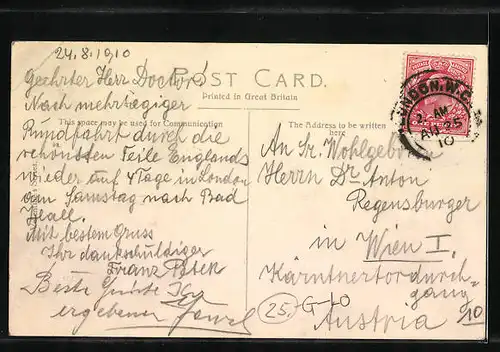 24.8.1910
Geehrter Herr Doctor!
POST CARD.
Printed in Great Britain
This space may be used for Communication
The Address to be written
here
Nach mehrtägiger
Rundfahrt durch die
schönsten Teile Englands
wieder auf 4 Tage in London
am Samstag nach Bad
Mit bestem Gruss
Ihr dankschuldiger
Franz
Beste Grüsse Ihr
ergebener
An Sr. Wohlgeboren
Herrn Dr Anton
Regensburger
in Wien I.
Kärntnertordurch-
gang
Austria
25.
LONDON. W.C.
AU 25
10